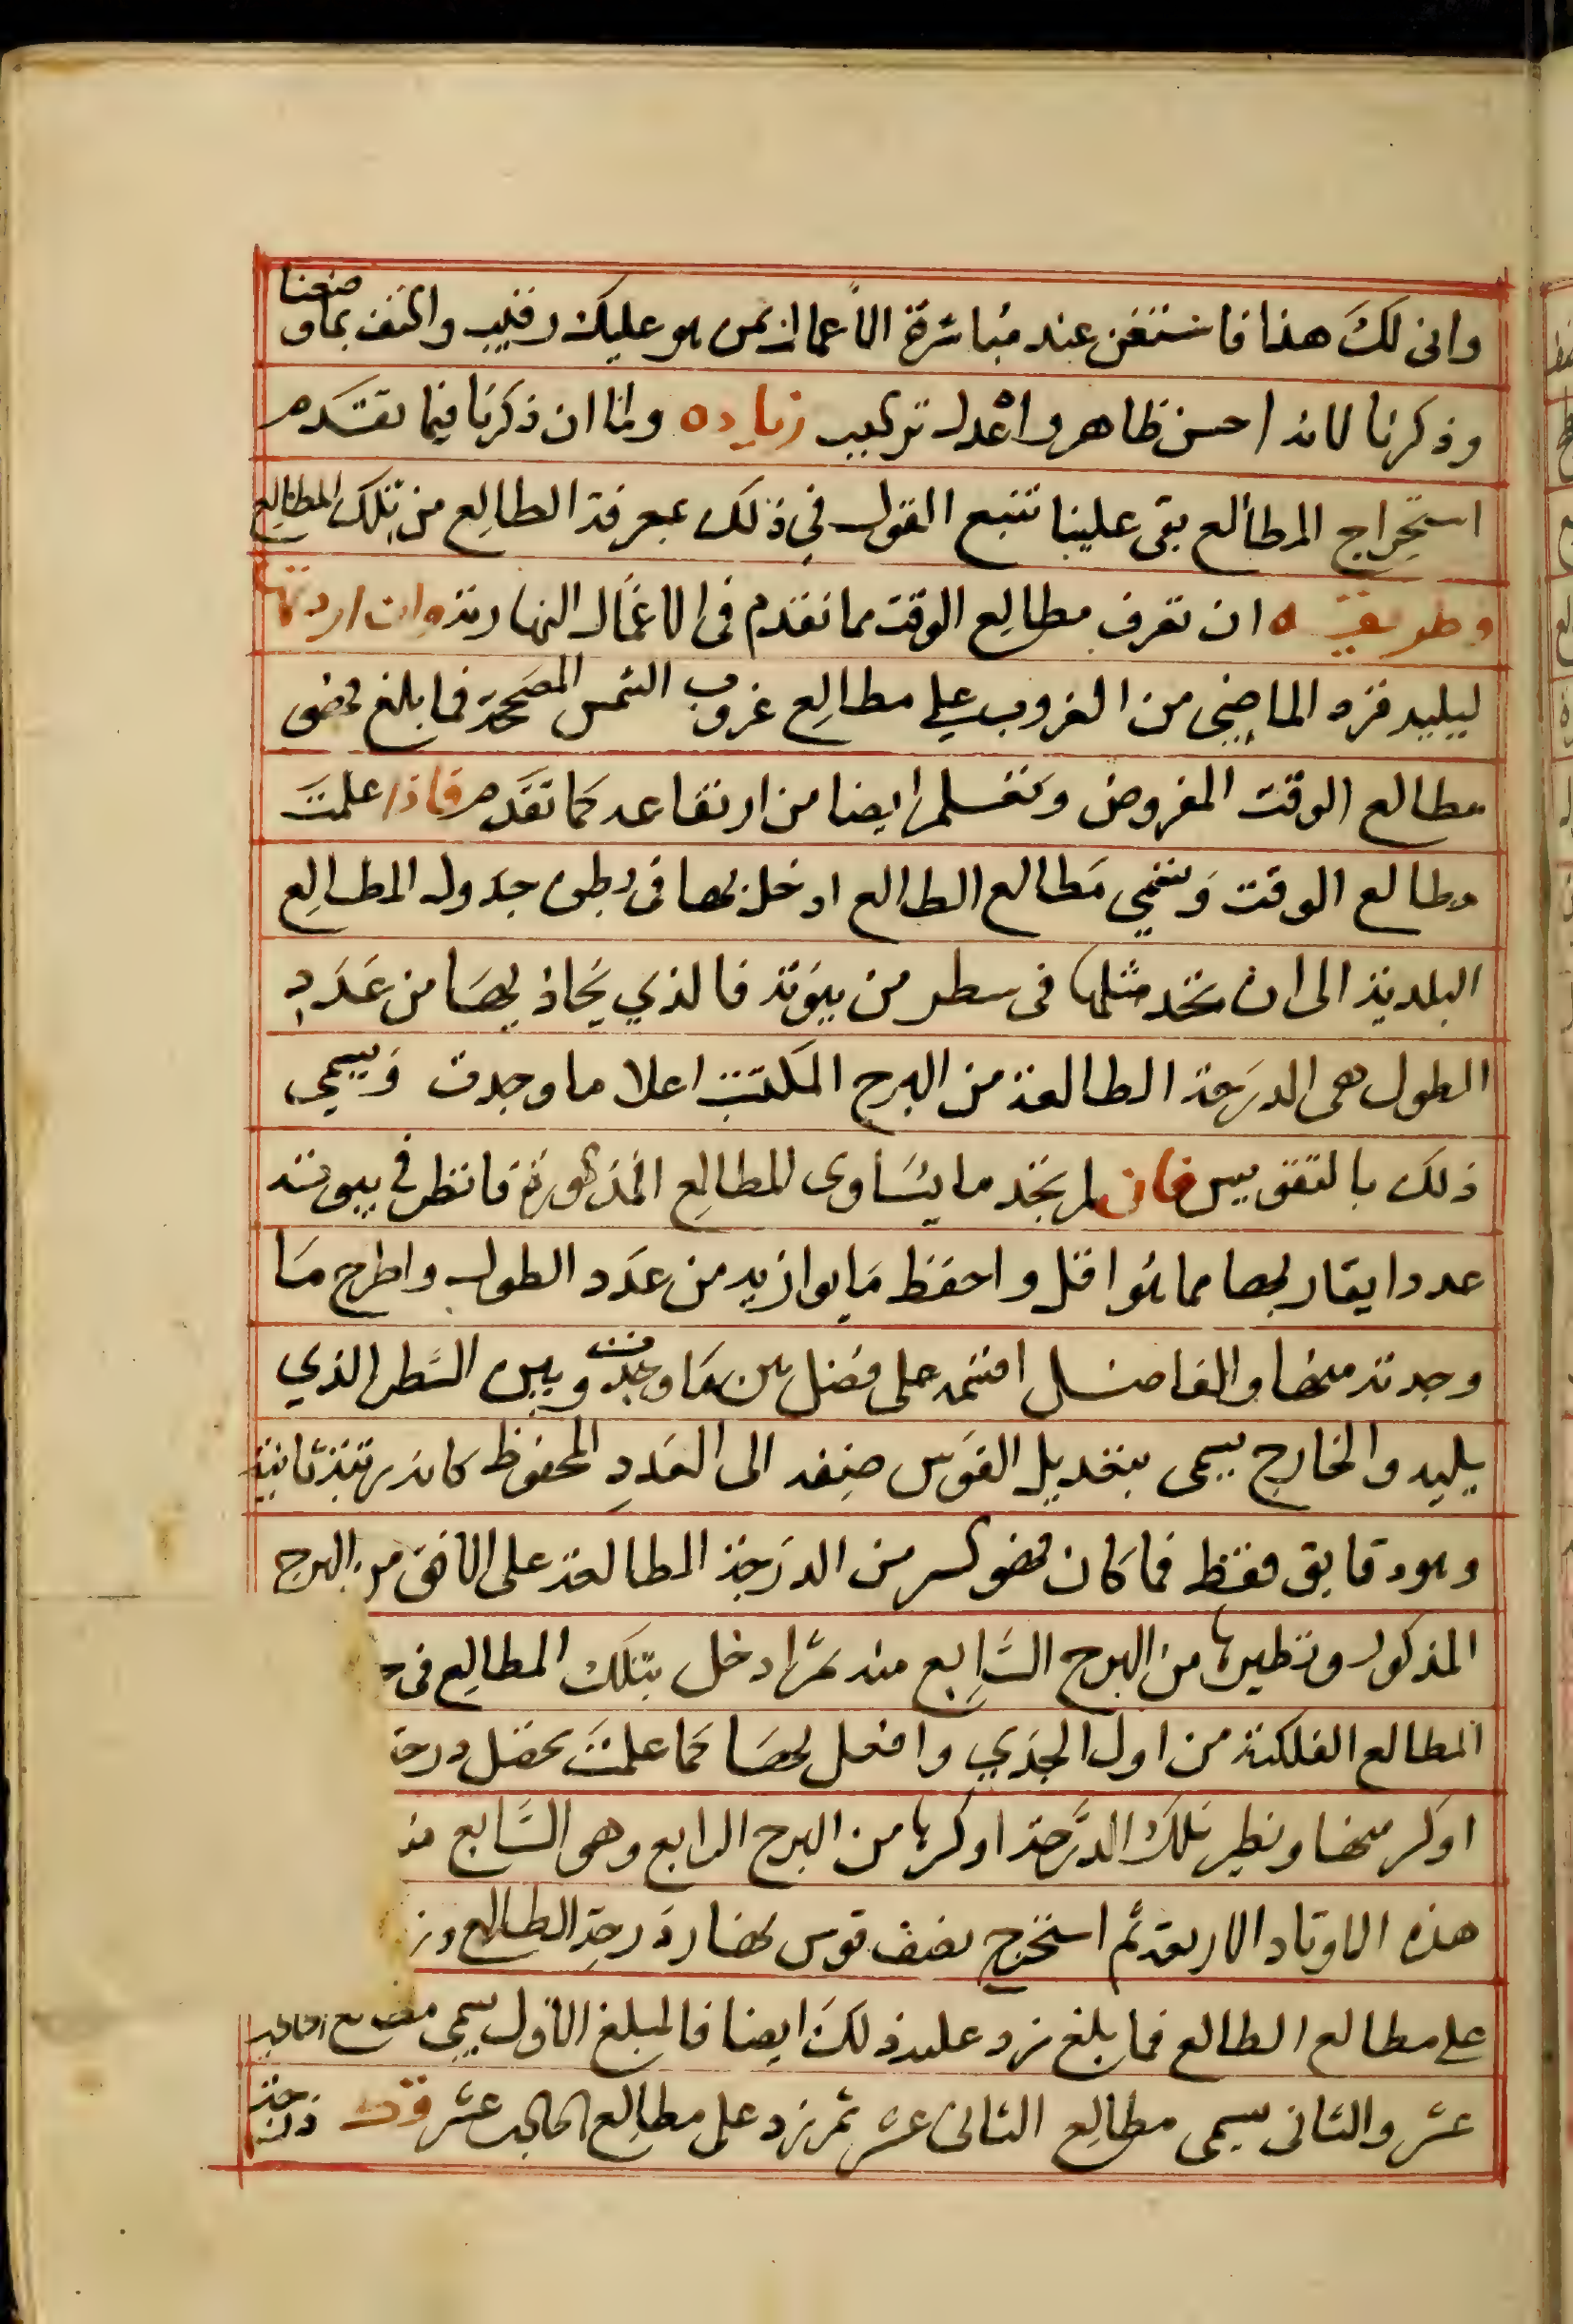 وان لك هذا فاستغن عند مباشرة الأعمال بمن هو عليك رقيب واكتف بما وضعنا
وذكرنا لانه احسن ظاهر واعدل تركيب زياده ولما ان ذكرنا فيما تقدم
استخراج المطالع بقى علينا نتبع القول في ذلك بمعرفة الطالع من تلك المطالع
وطريقته ان تعرف مطالع الوقت مما تقدم فى الاعمال النهارية وان اردتها
ليليه فزد الماضي من الغروب على مطالع غروب الشمس المصححة فما بلغ فهو
مطالع الوقت المفروض وتعلم ايضا من ارتفاعه كما تقدم فاذا علمت
مطالع الوقت وتسمي مطالع الطالع ادخل بها فى بطن جدول المطالع
البلدية الى ان تجد مثلها فى سطر من بيوته فالذي يحاذيها من عدد
الطول هى الدرجة الطالعة من البرج المكتتب اعلا ما وجدت ويسمي
ذلك بالتقويس فان لم تجد ما يساوى المطالع المذكورة فانظر في بيوته
عددا يقاربها مما هو اقل واحفظ ما يوازيه من عدد الطول واطرح ما
وجدته منها والفاضل اقسمه على فضل بين ما وجدت وبين السطر الذي
يليه والخارج يسمى بتعديل القوس ضفه الى العدد المحفوظ كانه مرتبة ثانية
وهو دقايق فقط فما كان فهو كسر من الدرجة الطالعة على الافق من البرج
المذكور ونظيرها من البرج السابع منه ثم ادخل بتلك المطالع فى
المطالع الفلكية من اول الجدي وافعل بها كما علمت تحصل درجة
اوكر منها ونظير تلك الدرجة اوكرها من البرج الرابع وهى السابع منه
هذه الاوتاد الاربعة ثم استخرج نصف قوس نهار درجة الطالع وز
على مطالع الطالع فما بلغ زد عليه ذلك ايضا فالمبلغ الأول يسمي مطالع الحادي
عشر والثانى يسمى مطالع الثانى عشر ثم زد على مطالع الحادي عشر قوت درجة